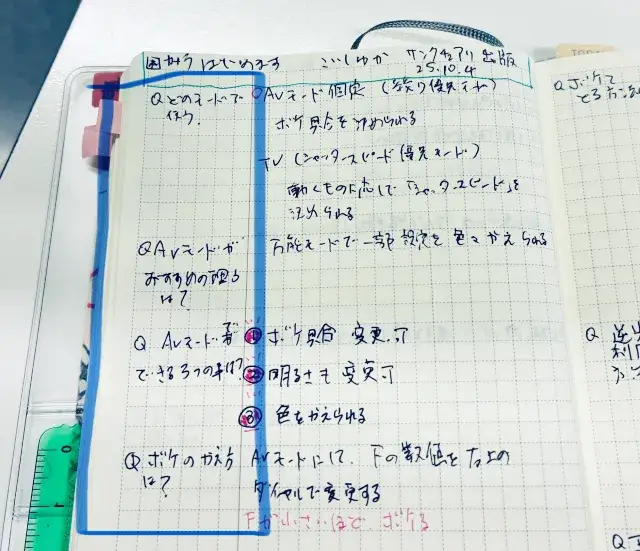 こいしゅか サンクチュアリ出版
25.10.4
Q どのモードで
使う?
Avモード (絞り優先モード)
ボケ具合を決められる
TV (シャッタースピード優先モード)
動くものに応じてシャッタースピードを
決められる
Q Avモードが
おすすめの理由
は?
万能モードで一番設定を色々かえられる
Q Avモードで
できる3つの事は?
① ボケ具合変更可
② 明るさも変更可
③ 色をかえられる
Q. ボケのかえ方
は?
Avモードにて、Fの数値を右上の
ダイヤルで変更する
Fが小さいほどボケる
Qボケて
とる方
Q
Q